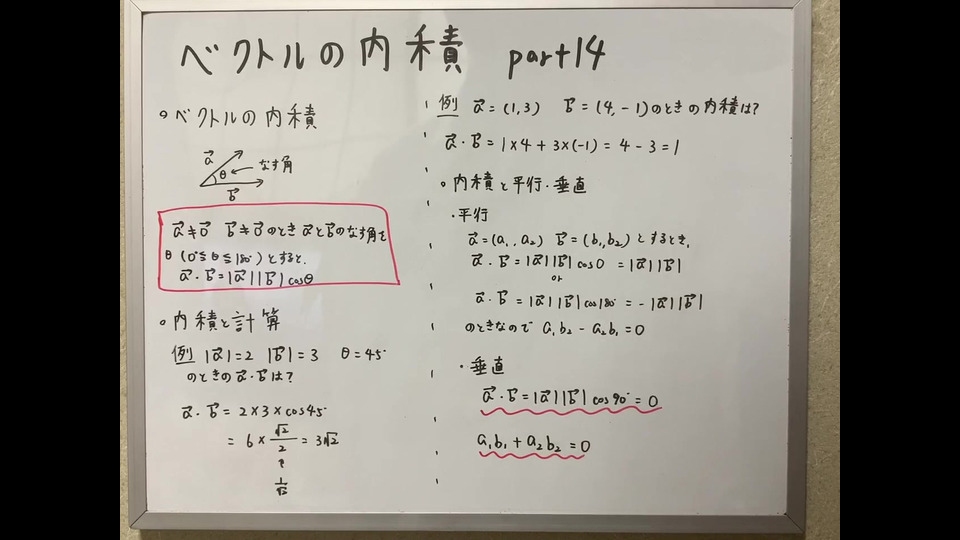 ベクトルの内積 part14
◦ベクトルの内積
a→ θ ← なす角
b→
a→≠0→ b→≠0→のとき a→とb→のなす角を
θ (0°≦θ≦180°)とすると、
a→・b→=|a→||b→|cosθ
◦内積と計算
例 |a→|=2 |b→|=3 θ=45°
のときのa→・b→は?
a→・b→=2×3×cos45°
=6×√2/2=3√2
↑
1/√2
例 a→=(1,3) b→=(4,-1)のときの内積は?
a→・b→=1×4+3×(-1)=4-3=1
◦内積と平行・垂直
・平行
a→=(a₁,a₂) b→=(b₁,b₂)とするとき、
a→・b→=|a→||b→|cos0=|a→||b→|
or
a→・b→=|a→||b→|cos180°=-|a→||b→|
のときなので a₁b₂-a₂b₁=0
・垂直
a→・b→=|a→||b→|cos90°=0
a₁b₁+a₂b₂=0